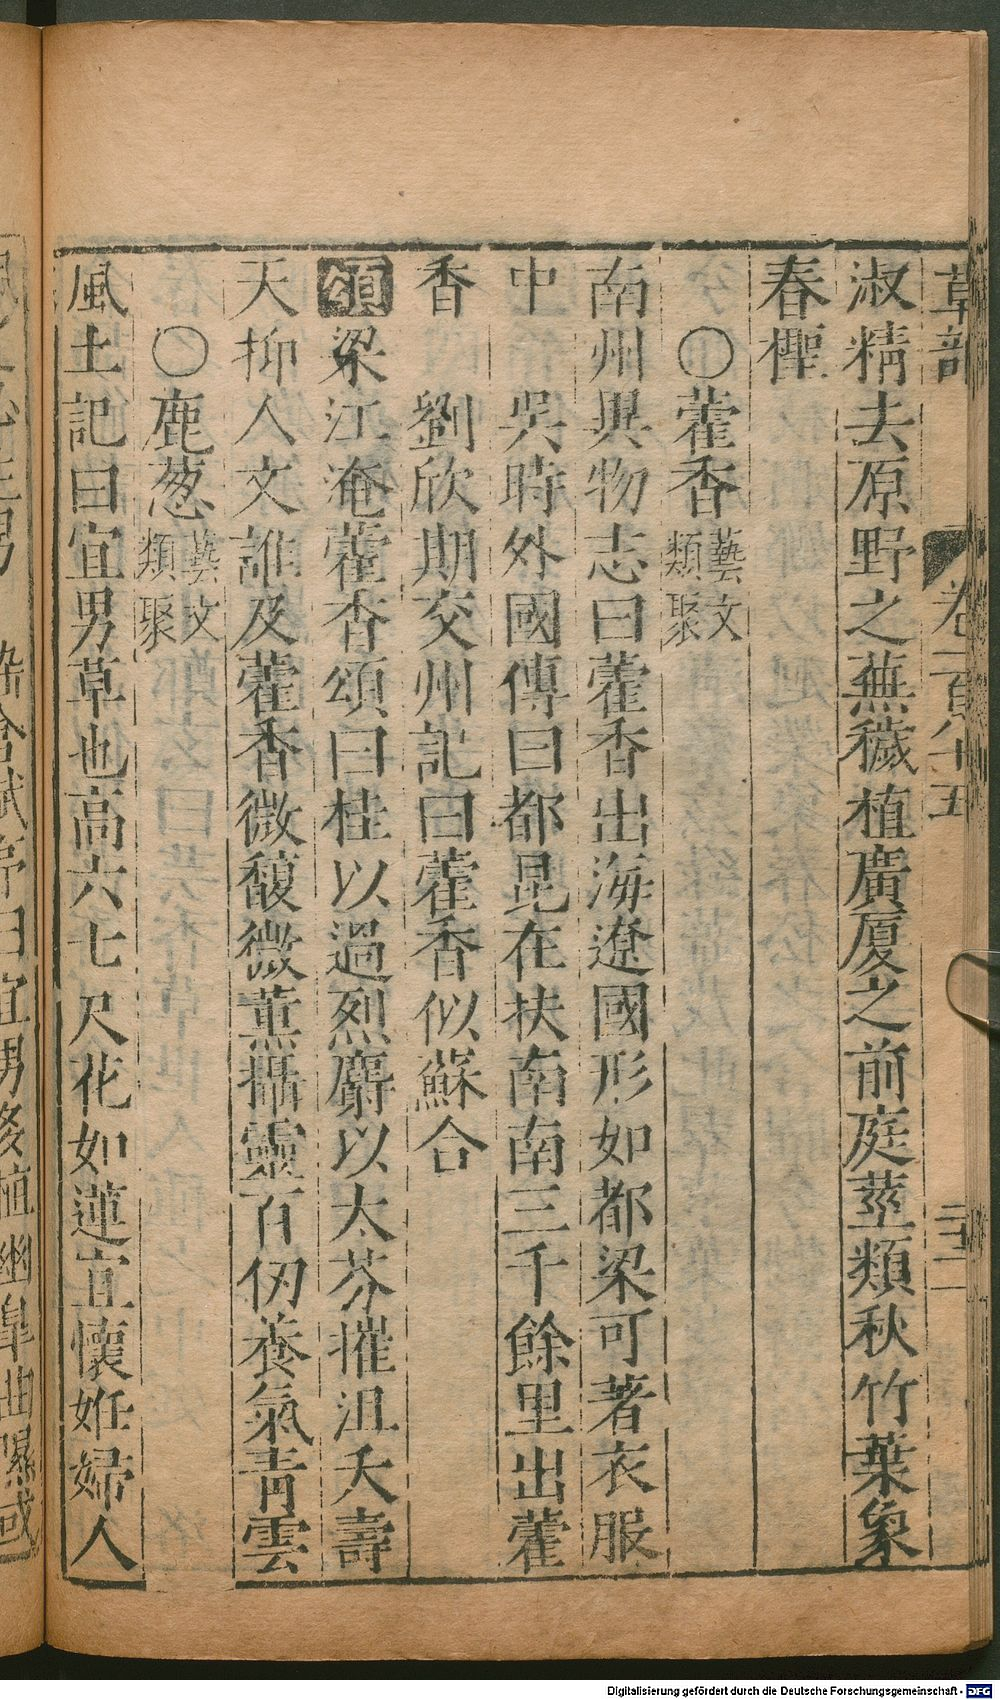 草部　卷一百八十五
淑精去原野之蕪穢植廣厦之前庭莖類秋竹葉象
春檉
○藿香藝文類聚
南州異物志曰藿香出海遼國形如都梁可著衣服
中　吳時外國傳曰都昆在扶南南三千餘里出藿
香　劉欣期交州記曰藿香似蘇合
頌梁江淹藿香頌曰桂以過烈麝以太芬摧沮夭壽
天抑人文誰及藿香微馥微薰攝靈百仞養氣青雲
○鹿葱藝文類聚
風土記曰宜男草也高六七尺花如蓮宜懷妊婦人
賦序曰宜男多植幽皐曲隰或
Digitalisierung gefördert durch die Deutsche Forschungsgemeinschaft - DFG